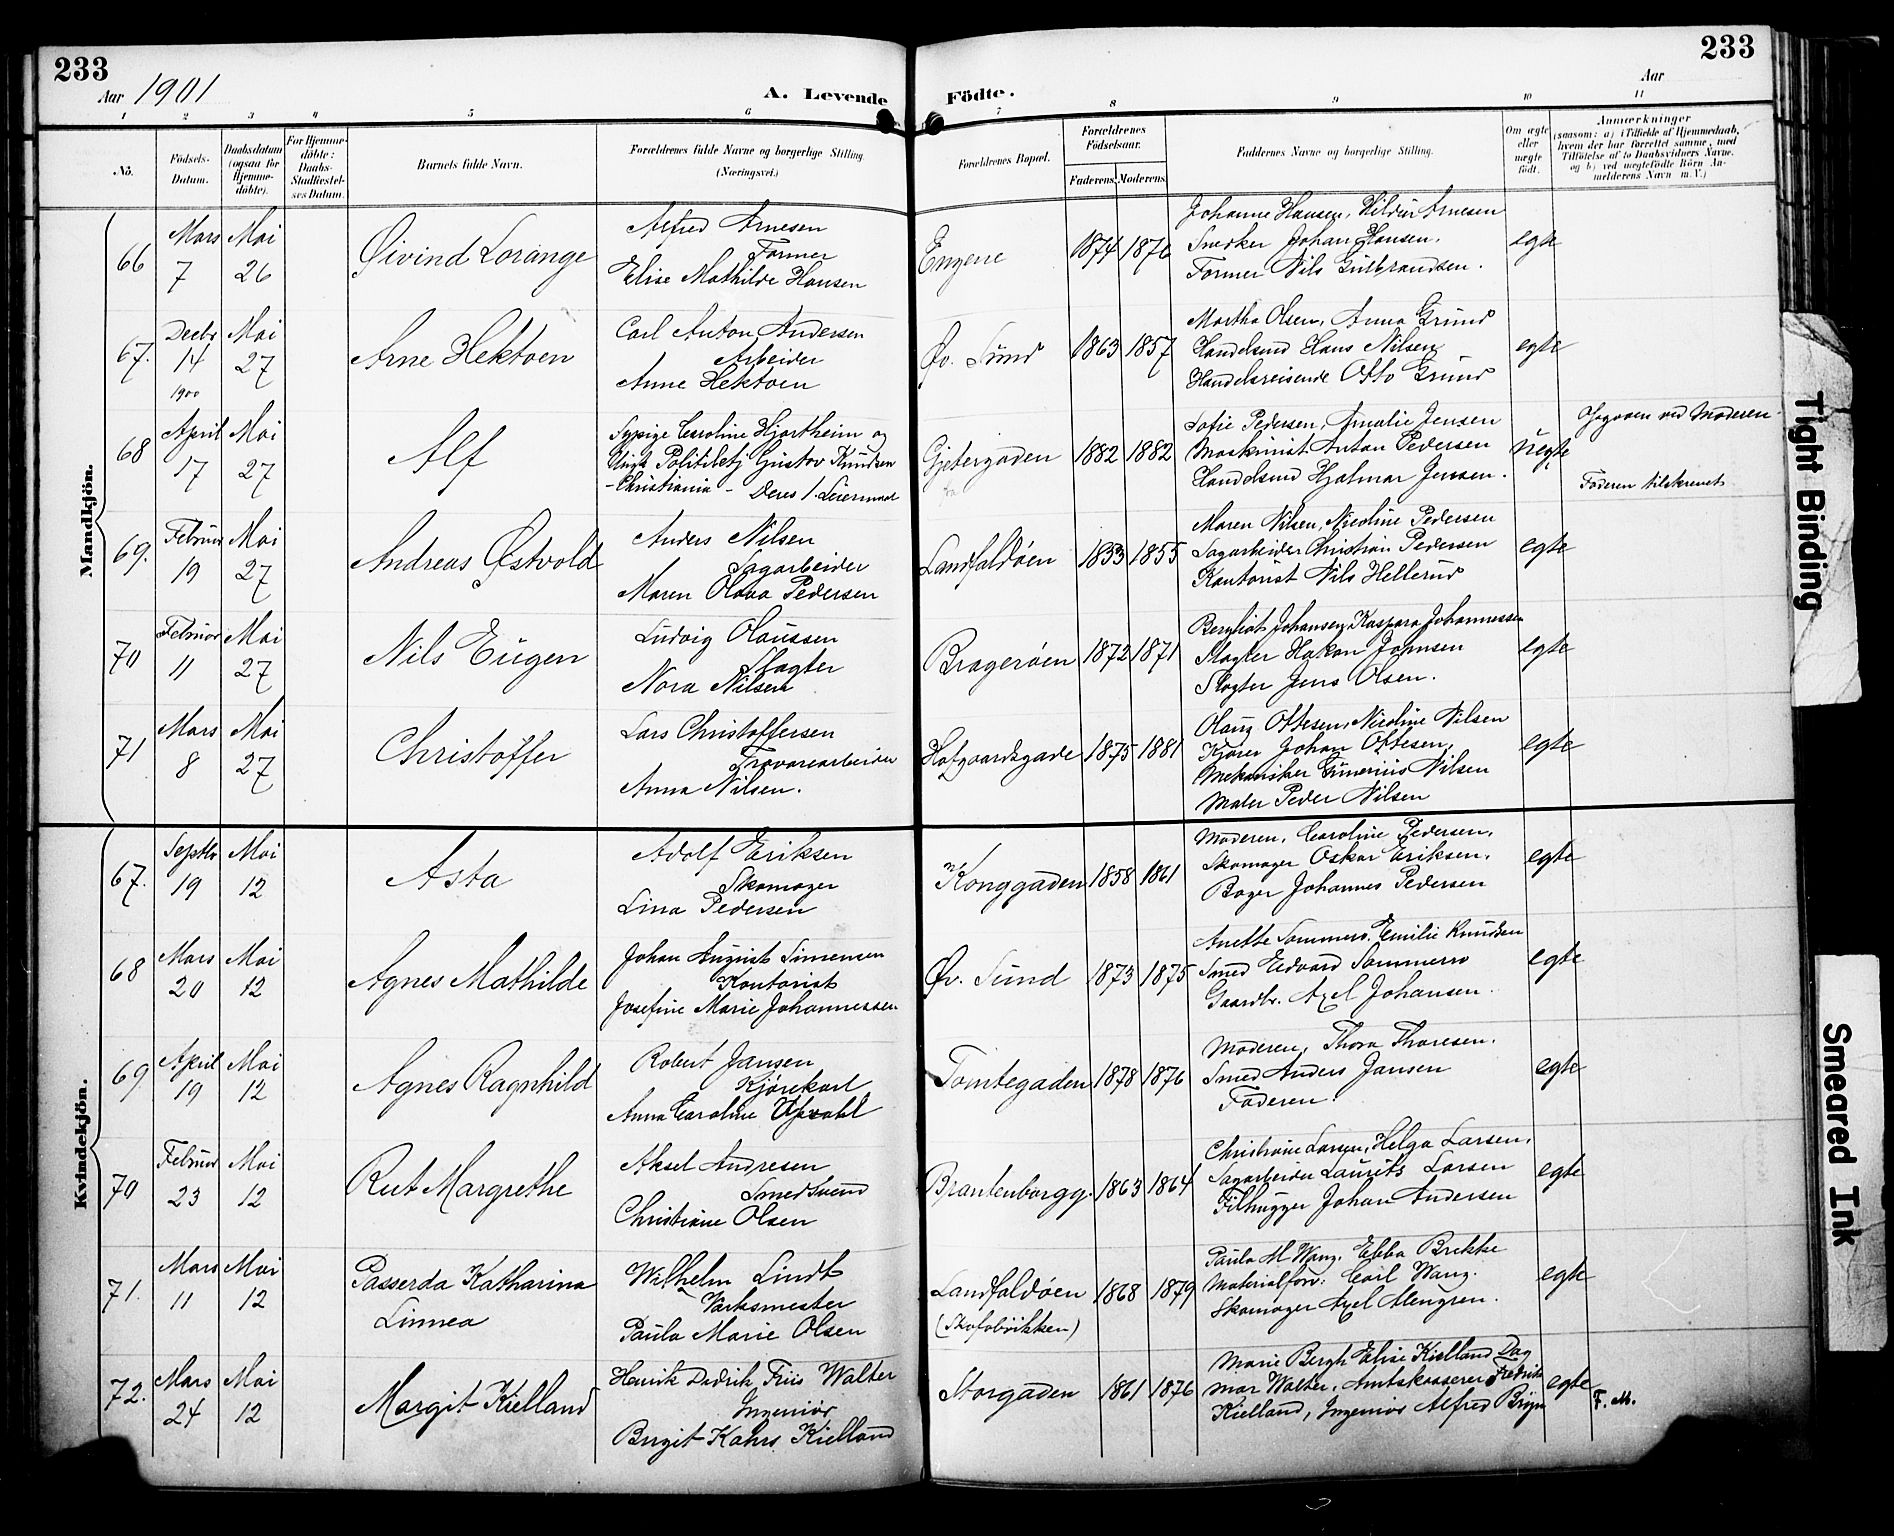 233
Aar 1901
A. Levende
Födte.
Aar
233
1 2 3 4 5 6 7 8 9 10 11
No.
Födsels-Datum.
Daabsdatum (ogsaa för Hjemme-döbte).
For Hjemme-döbte: Daabs-Stadfæstel-ses Datum.
Barnets fulde Navn.
Forældrenes fulde Navne og borgerlige Stilling (Næringsvei.)
Forældrenes Bopæl.
Forældrenes Födselsaar.
Faderens. Moderens.
Faddernes Navne og borgerlige Stilling.
Om ægte eller uægte födt.
Anmærkninger
(saasom: a) i Tilfælde af Hjemmedaab, hvem der har forrettet samme, med Tilföielse af to Daabsvidners Navne. og b) ved uægtefödte Börn An-melderens Navn m. V.)
Mandkjön.
66 Mars 7 Mai 26 Øivind Lorange
Alfred Arnesen
Former
Elise Mathilde Hansen
Engene 1874 1876
Johanne Hansen, Hildur Arnesen
Snedker Johan Hansen.
Former Nils Gulbrandsen.
egte
67. Decbr 14 1900 Mai 27 Arne Hektoen
Carl Anton Andersen
Arbeider
Anne Hektoen
Øv. Sund 1863 1857
Martha Olsen, Anna Grund
Handelsmd Hans Nilsen
Handelsreisende Otto Grund
egte
68 April 17 Mai 27 Alf
Sypige Caroline Hjortheim og
Politibetj Gustav Knudsen
- Christiania - Deres 1. Leiermaal
Gjetergaden 1882 1882
Sofie Pedersen, Amalie Jensen
Maskinist Anton Pedersen
Handelsmd Hjalmar Jensen.
uegte
Opgaven ved Moderen
Faderen tilskrevet
69. Februar 19 Mai 27 Andreas Østvold
Anders Nilsen
Sagarbeider
Maren Olava Pedersen
Landfaldøen 1853 1855
Maren Nilsen, Nicoline Pedersen
Sagarbeider Christian Pedersen
Kontorist Nils Hellerud
egte
70 Februar 11 Mai 27 Nils Eugen
Ludvig Olaussen
Slagter
Nora Nilsen
Bragerøen 1872 1871
Bergliot Johansen, Kaspara Johannessen
Slagter Hakon Johnsen
Slagter Jens Olsen.
egte
71 Mars 8 Mai 27 Christoffer
Lars Christoffersen
Trævarearbeider
Anna Nilsen.
Hofgaardsgade 1875 1881
Olaug Ottesen, Nicoline Nilsen
Kjører Johan Ottesen,
Mekaniker Gunerius Nilsen
Maler Peder Nilsen
egte
Kvindekjön.
67. Septbr 19 Mai 12 Asta
Adolf Eriksen
Skomager
Lina Pedersen
Konggaden 1858 1861
Moderen, Caroline Pedersen,
Skomager Oskar Eriksen,
Bager Johannes Pedersen
egte
68 Mars 20 Mai 12 Agnes Mathilde
Johan August Simensen
Kontorist
Josefine Marie Johannessen
Øv. Sund 1873 1875
Anette Sommero, Emilie Knudsen
Smed Edvard Sommerro
Gaardbr. Axel Johansen.
egte
69 April 19 Mai 12 Agnes Ragnhild
Robert Jansen
Kjørekarl
Anna Caroline
Tomtegaden 1878 1876
Moderen, Thora Thoresen.
Smed Anders Jansen
Faderen.
egte
70 Februar 23 Mai 12 Rut Margrethe
Aksel Andresen
Smedsvend
Christiane Olsen
Brantenborgg. 1863 1864
Christiane Larsen, Helga Larsen,
Sagarbeider Laurits Larsen
Filhugger Johan Andersen
egte
71. Mars 11 Mai 12 Passerda Katharina
Linnea
Wilhelm Lindt
Værksmester
Paula Marie Olsen
Landfaldøen
(Skofabrikken)
1868 1879
Paula M Wang, Ebba Brekke
Materialforv: Carl Wang.
Skomager Axel Almgren.
egte
72. Mars 24 Mai 12 Margit Kielland
Henrik Didrik Friis Walter
Ingeniør
Birgit Kahrs Kielland
Storgaden 1861 1876
Marie Bergh, Elise Kielland Dag
mar Walter, Amtskasserer Fredrik
Kielland, Ingeniør Alfred Bryn
egte
F. M.
Tight Binding
Smeared Ink